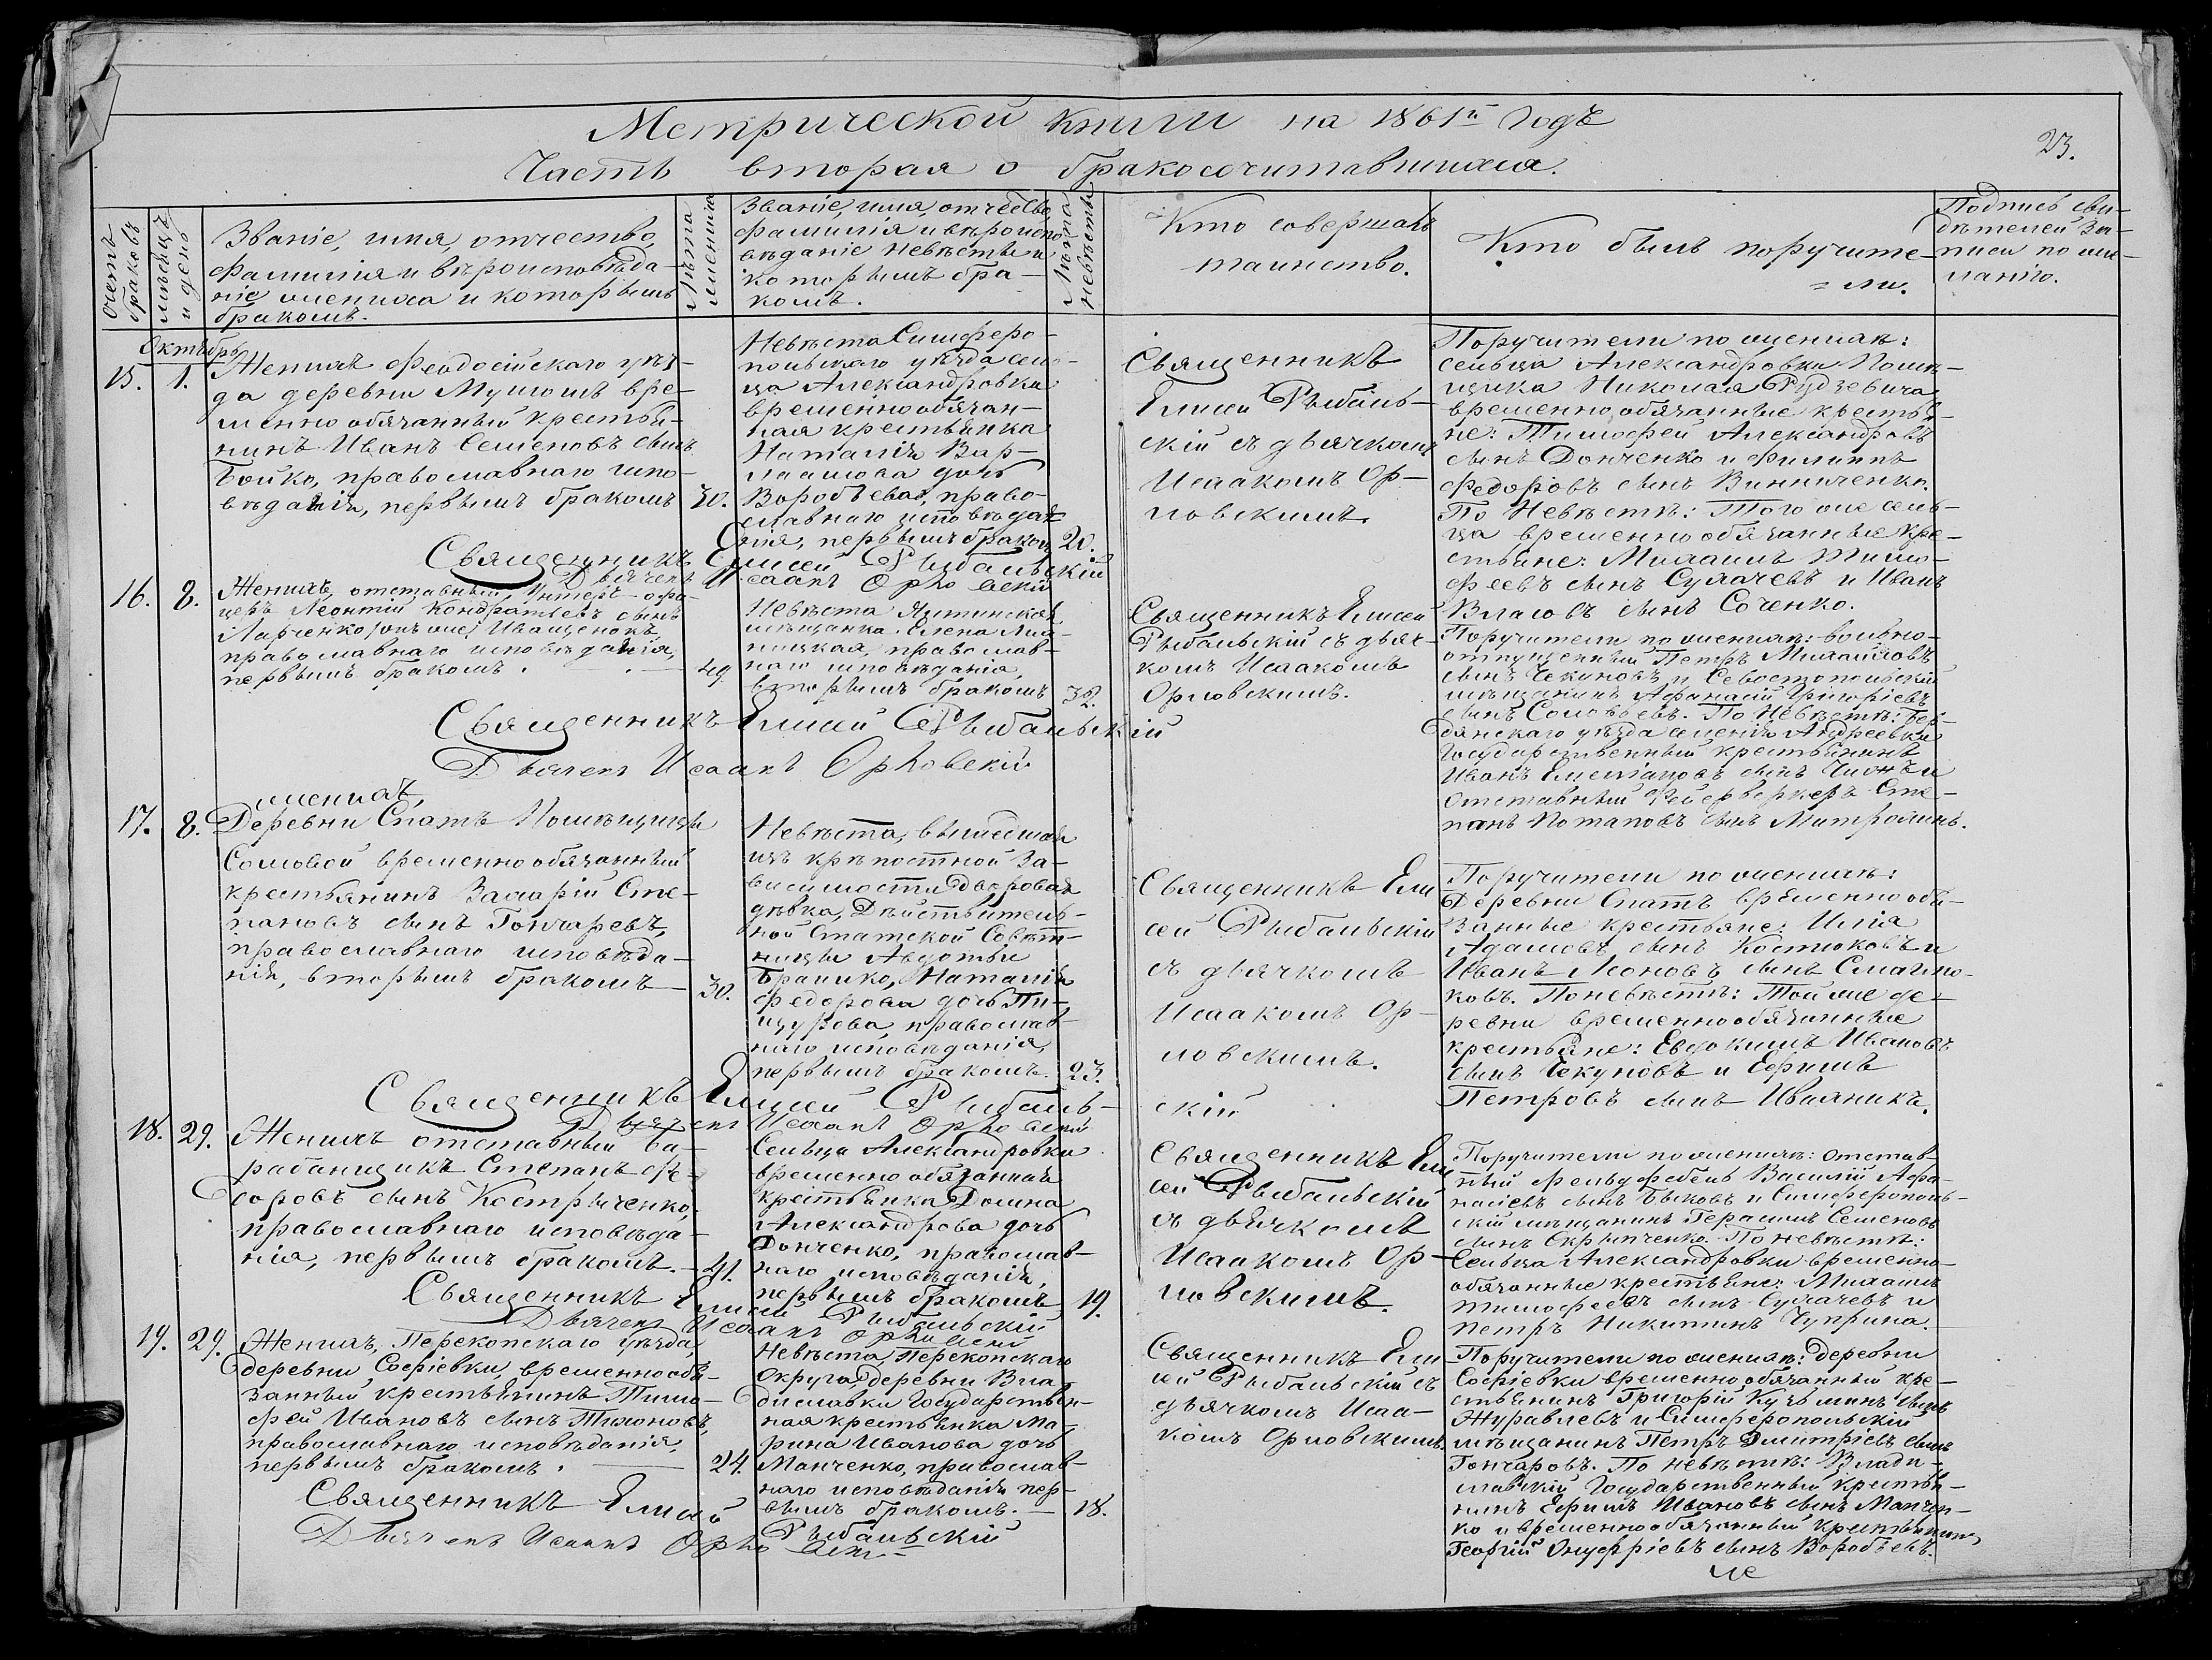 Метрической книги на 1861й Годъ
Часть вторая о бракосочитавшихся.
23.
Счетъ браковъ
мѣсяцъ и день
Званіе, имя, отчество,
фамилія и вѣроисповѣда-
ніе жениха и которымъ
бракомъ.
Лѣта жениха
Званіе, имя, отчество,
фамилія и вѣроиспо-
вѣданіе невѣсты и
которымъ бра-
комъ.
Лѣта невѣсты
Кто совершалъ
таинство.
Кто былъ поручите-
=ли.
Подпись сви-
дѣтелей За-
писи по же-
ланію.
Октябрь
15. 1.
Женихъ Феодосійскаго уѣз-
да деревни Мушашъ вре-
менно обязанный крестья-
нинъ Иванъ Семеновъ сынъ
Бойко, православнаго испо-
вѣданія, первымъ бракомъ 30.
Невѣста Симферо-
польскаго уѣзда сель-
ца Александровки
временнообязан-
ная крестьянка
Наталія Вар-
лаамова дочь
Воробьева, право-
славнаго исповѣда-
нія, первымъ бракомъ 20.
Священникъ
Елисей Рыбаль-
скій съ дьячкомъ
Исаакомъ Ор-
ловскимъ.
Поручители по женихѣ:
сельца Александровки Помѣ-
щика Николая Рудзевича
временно обязанные крестья-
не: Тимофей Александровъ
сынъ Донченко и Филиппъ
Федоровъ сынъ Винниченко.
По Невѣстѣ: Того же сель-
ца временно обязанные кре-
стьяне: Михаилъ Тимо-
феевъ сынъ Сухачевъ и Иванъ
Власовъ сынъ Соченко.
Священникъ Елисей Рыбальскій
Дьячекъ Исаакъ Орловскій
16. 8.
Женихъ, отставный Унтеръ-офи-
церъ Леонтій Кондратьевъ сынъ
Ларченко, онъ же Иващенокъ,
православнаго исповѣданія,
первымъ бракомъ. 49
Невѣста Ялтинская
мѣщанка Елена
православ-
наго исповѣданія,
вторымъ бракомъ 32.
Священникъ Елисей
Рыбальскій съ дьяч-
комъ Исаакомъ
Орловскимъ.
Поручители по женихѣ: вольно-
отпущенный Петръ Михайловъ
сынъ Чекиновъ и Севостопольскій
мѣщанинъ Афанасій Григорьевъ
сынъ Соловьевъ. По Невѣстѣ: Бер-
дянскаго уѣзда селенія Андреевки
Государственный крестьянинъ
Иванъ Емельяновъ сынъ и
отставный Фейерверкеръ Сте-
панъ Потаповъ сынъ Митрохинъ.
Священникъ Елисей Рыбальскій
Дьячекъ Исаакъ Орловскій
17. 8.
женихъ,
Деревни Спатъ Помѣщицы
Сомовой временно обязанный
крестьянинъ Захарій Сте-
пановъ сынъ Гончаревъ,
православнаго исповѣда-
нія, вторымъ бракомъ 30.
Невѣста, вышедшая
изъ крѣпостной за-
висимости дворовая
дѣвка, Дѣйствитель-
ной Статской Совѣт-
ницы Авдотьи
Браилко, Наталія
Федорова дочь Пи-
щурова, православ-
наго исповѣданія,
первымъ бракомъ. 23.
Священникъ Ели
сей Рыбальскій
съ дьячкомъ
Исаакомъ Ор-
ловскимъ.
Поручители по женихѣ:
Деревни Спатъ временно обя-
занные крестьяне: Илія
Адамовъ сынъ Костюковъ и
Иванъ Леоновъ сынъ
ковъ. По невѣстѣ: Той же де-
ревни временнообязанные
крестьяне: Евдокимъ Ивановъ
сынъ Чекуновъ и Ефимъ
Петровъ сынъ Ивахникъ.
Священникъ Елисей Рыбаль-
скій
Дьячекъ Исаакъ Орловскій
18. 29.
Женихъ отставный Ба-
рабанщикъ Степанъ Фе-
доровъ сынъ Костриченко,
православнаго исповѣда-
нія, первымъ бракомъ. 41.
Сельца Александровки
временно обязанная
крестьянка Домна
Александрова дочь
Донченко, православ-
наго исповѣданія,
первымъ бракомъ 19.
Священникъ Ели
сей Рыбальскій
съ дьячкомъ
Исаакомъ Ор-
ловскимъ.
Поручители по женихѣ: отстав-
ный Фельдфебель Василій Афа-
насіевъ сынъ Быковъ и Симферополь-
скій мѣщанинъ Герасимъ Семеновъ
сынъ Скрыпченко. По невѣстѣ:
Сельца Александровки временно-
обязанные крестьяне: Михаилъ
Тимофеевъ сынъ Сухачевъ и
Петръ Никитинъ Чуприна.
Священникъ Елисей Рыбальскій
Дьячекъ Исаакъ Орловскій
19. 29.
Женихъ, Перекопскаго уѣзда,
деревни Софіевки, временно обя-
занный крестьянинъ Тимо-
фей Ивановъ сынъ Тихоновъ,
православнаго исповѣданія,
первымъ бракомъ. 24.
Невѣста, Перекопскаго
Округа, деревни Вла-
диславки Государствен-
ная крестьянка Ма-
рина Иванова дочь
Манченко, православ-
наго исповѣданія пер-
вымъ бракомъ. 18.
Священникъ Ели
сей Рыбальскій съ
дьячкомъ Исаа-
комъ Орловскимъ
Поручители по женихѣ: деревни
Софіевки временно обязанный кре-
стьянинъ Григорій Кузьминъ сынъ
Журавлевъ и Симферопольскій
мѣщанинъ Петръ Дмитріевъ сынъ
Гончаровъ. По невѣстѣ: Влади-
славскій Государственный крестья-
нинъ Ефимъ Ивановъ сынъ Манчен-
ко и временно обязанный крестьянинъ
Георгій Онуфріевъ сынъ Воробьевъ.
Священникъ Елисей Рыбальскій
Дьячекъ Исаакъ Орловскій